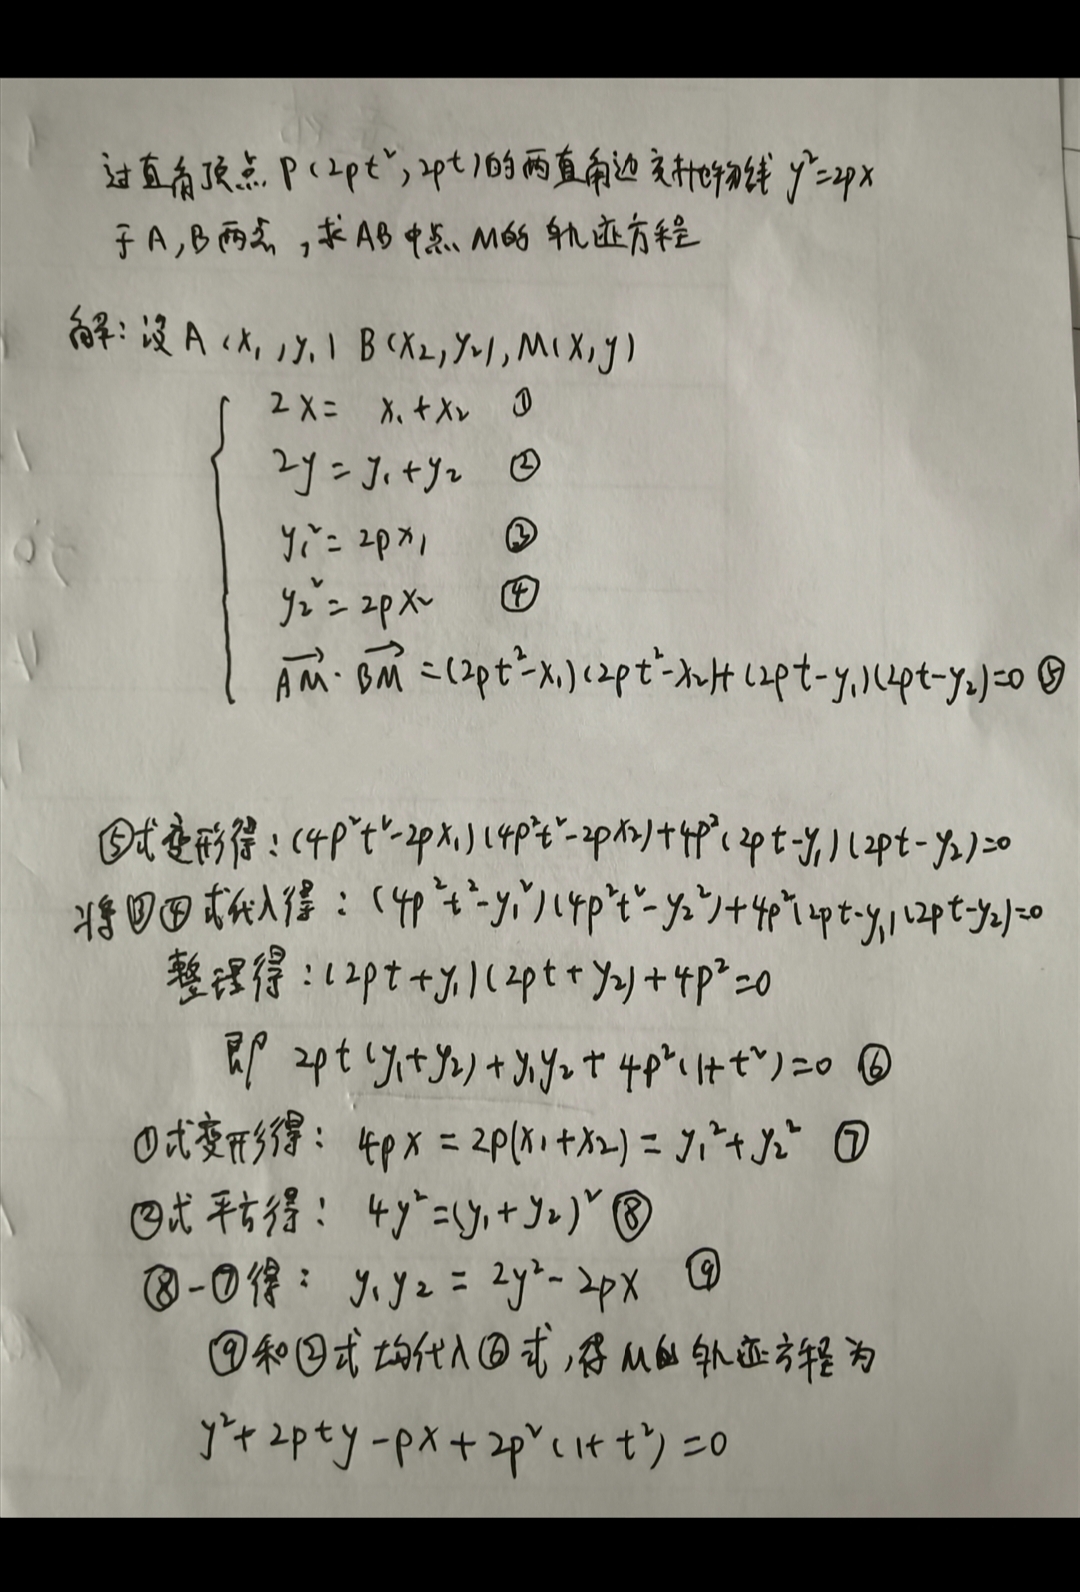 过直角顶点 P(2pt²,2pt)的两直角边交抛物线 y²=2px
于A,B两点,求AB中点M的轨迹方程
解:设A(x₁,y₁) B(x₂,y₂),M(x,y)
2x= x₁+x₂ ①
2y=y₁+y₂ ②
y₁²=2px₁ ③
y₂²=2px₂ ④
AM·BM=(2pt²-x₁)(2pt²-x₂)+(2pt-y₁)(2pt-y₂)=0 ⑤
⑤式变形得:(4p²t²-2px₁)(4p²t²-2px₂)+4p²(2pt-y₁)(2pt-y₂)=0
将③④式代入得:(4p²t²-y₁²)(4p²t²-y₂²)+4p²(2pt-y₁)(2pt-y₂)=0
整理得:(2pt+y₁)(2pt+y₂)+4p²=0
即 2pt(y₁+y₂)+y₁y₂+4p²(1+t²)=0 ⑥
①式变形得: 4px=2p(x₁+x₂)=y₁²+y₂² ⑦
②式平方得: 4y²=(y₁+y₂)² ⑧
⑧-⑦得: y₁y₂=2y²-2px ⑨
⑨和②式均代入⑥式,得M的轨迹方程为
y²+2pty-px+2p²(1+t²)=0